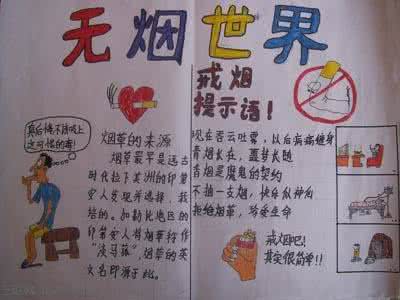 无烟世界
戒烟
提示语！
真后悔不该吸上
这可恨的毒！
烟草的来源
烟草最早是远古
时代拉丁美洲的印第
安人发现并选择、栽
培的。加勒比地区的
印第安人将烟草称作
“淡马菰”烟草的英
文名即源于此。
现在吞云吐雾，以后病痛缠身
青烟长在，噩梦长随
香烟是魔鬼的契约
不抽一支烟，快乐似神仙
拒绝烟草，珍爱生命
戒烟吧！
其实很简单!!